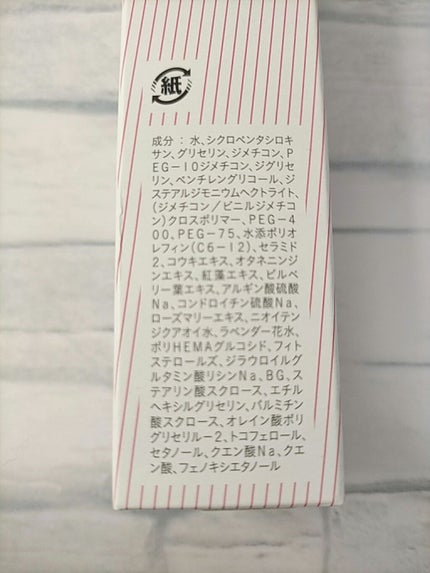 紙
成分：水、シクロペンタシロキ
サン、グリセリン、ジメチコン、P
EG-10ジメチコン、ジグリセ
リン、ペンチレングリコール、ジ
ステアルジモニウムヘクトライト、
(ジメチコン/ビニルジメチコ
ン)クロスポリマー、PEG-4
00、PEG-75、水添ポリオ
レフィン(C6-12)、セラミド
2、コウキエキス、オタネニンジ
ンエキス、紅藻エキス、ビルベ
リー葉エキス、アルギン酸硫酸
Na、コンドロイチン硫酸Na、
ローズマリーエキス、ニオイテン
ジクアオイ水、ラベンダー花水、
ポリHEMAグルコシド、フィト
ステロールズ、ジラウロイルグ
ルタミン酸リシンNa、BG、ス
テアリン酸スクロース、エチル
ヘキシルグリセリン、パルミチン
酸スクロース、オレイン酸ポリ
グリセリル-2、トコフェロール、
セタノール、クエン酸Na、クエ
ン酸、フェノキシエタノール